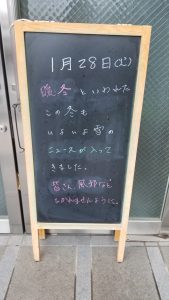 1月28日(土)
暖冬といわれた
この冬も
いよいよ雪の
ニュースが入って
きました。
皆さん、風邪など
ひかれませんように。